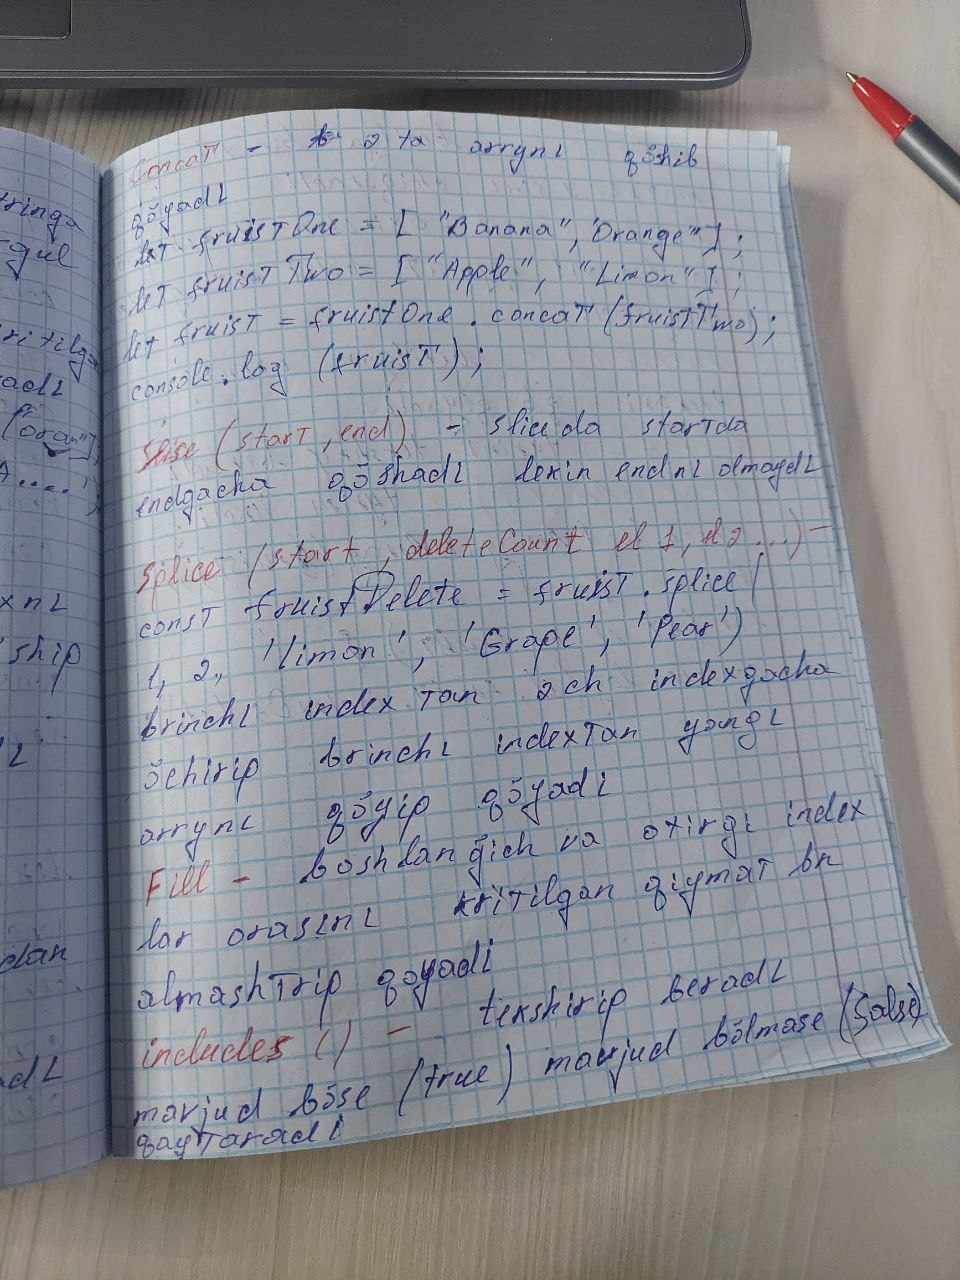 tringa
rgul
iritilga
adi
("oran"];
A....');
xni
ship
dan
adi
Concat - 2 ta arryni qõshib
qõyadi
let fruistOne = [ "Banana", "Orange"];
let fruistTwo = [ "Apple", "Limon"];
let fruist = fruistOne.concat(fruistTwo);
console.log (fruist);
Slise (start, end) - slice da startda
endgacha qõshadi lekin endni olmaydi
Splice (start, deleteCount el 1, el 2 ...) -
const fruistDelete = fruist.splice(
1, 2, 'limon', 'Grape', 'Pear')
brinchi indextan 2ch indexgacha
õchirip brinchi indextan yangi
arryni qõyip qõyadi
Fill - boshlanğich va oxirgi index
lar orasini kritilgan qiymat bn
almashtrip qoyadi
includes () - tekshirip beradi
mavjud bõse (true) mavjud bõlmase (false)
qaytaradi